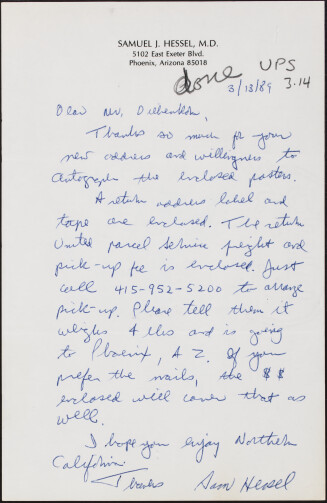 SAMUEL J. HESSEL, M.D.
5102 East Exeter Blvd.
Phoenix, Arizona 85018
done UPS
3/13/89 3.14
Dear Mr. Diebenkorn,
Thanks so much for your
new address and willingness to
autograph the enclosed posters.
A return address label and
tape are enclosed. The return
United Parcel Service freight and
pick-up fee is enclosed. Just
call 415-952-5200 to arrange
pick-up. Please tell them it
weighs 4 lbs and is going
to Phoenix, AZ. If you
prefer the mails, the $$
enclosed will cover that as
well.
I hope you enjoy Northern
California.
Thanks Sam Hessel